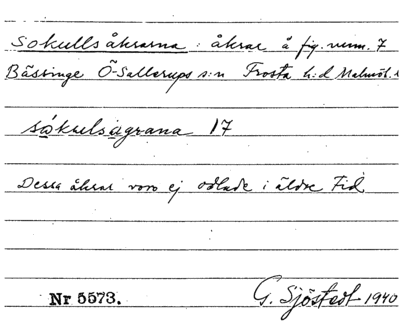 Sokullsåkrarna : åkrar å fig. num. 7
Bässinge Ö-Sallerups s:n Frosta h:d Malmöh. l
såkulsagrana 17
Dessa åkrar voro ej odlade i äldre tid.
Nr 5573.
G. Sjöstedt 1940